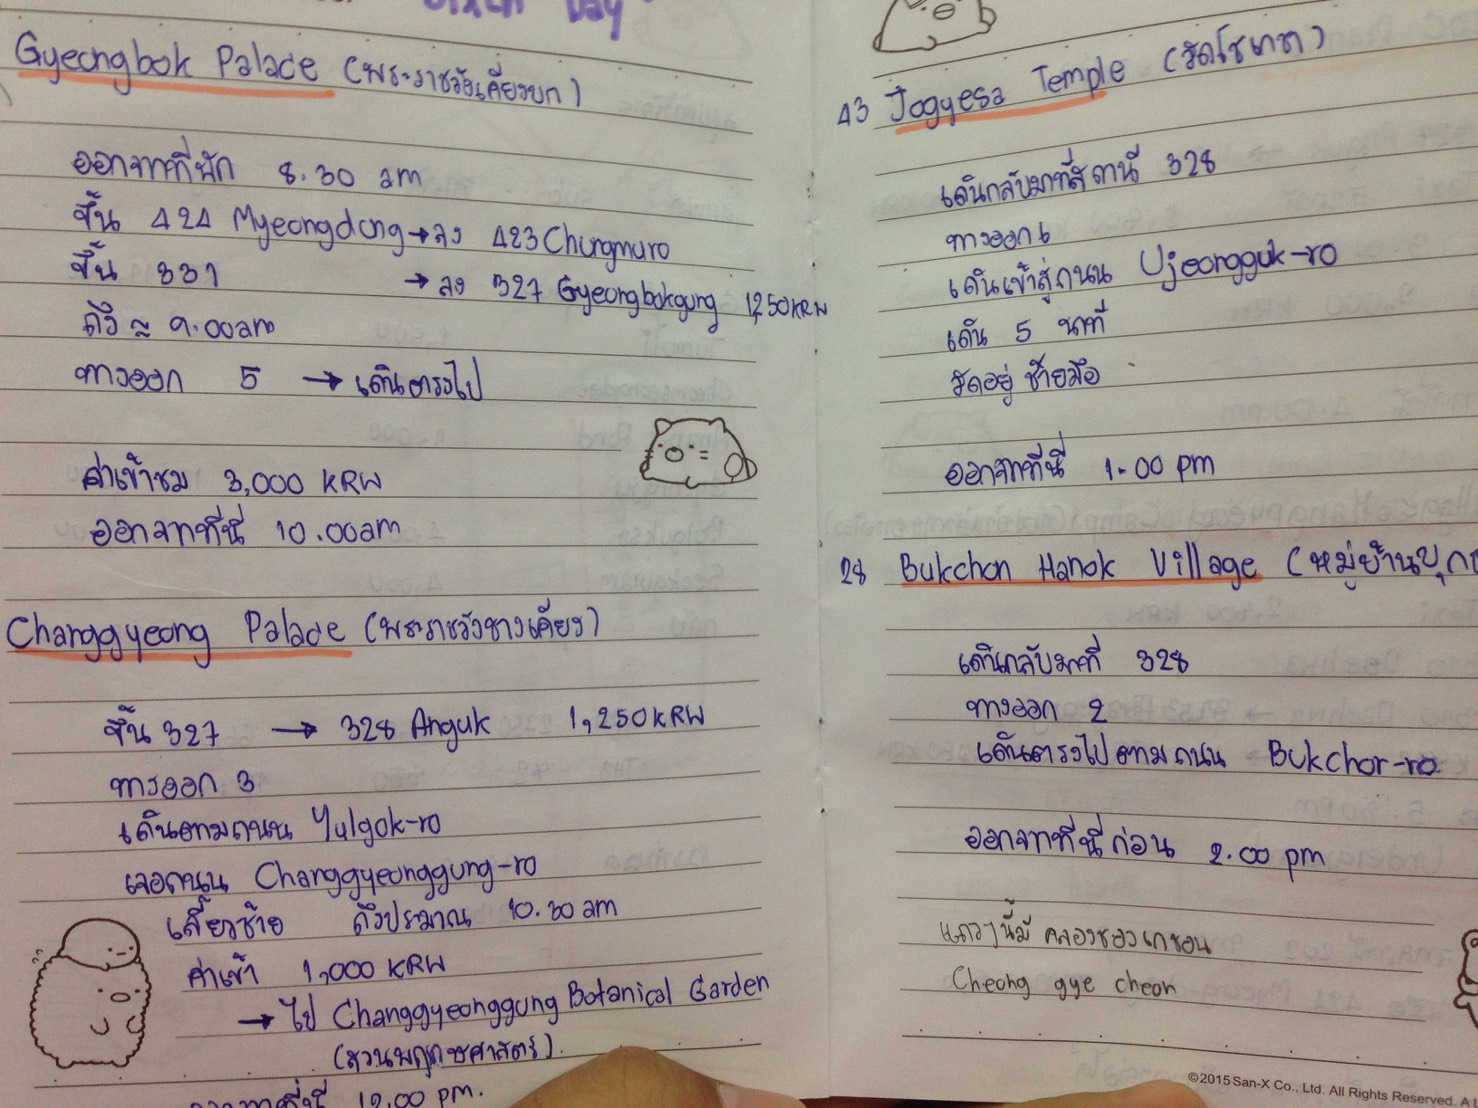 Day
Gyeongbok Palace (พระราชวังเคียงบก)
ออกจากที่พัก 8.30 am
ขึ้น 424 Myeongdong → ลง 423 Chungmuro
ขึ้น 331 → ลง 327 Gyeongbokgung 1,250 KRW
ถึง ≈ 9.00 am
ทางออก 5 → เดินตรงไป
ค่าเข้าชม 3,000 KRW
ออกจากที่นี่ 10.00 am
Changgyeong Palace (พระราชวังชางเคียง)
ขึ้น 327 → 328 Anguk 1,250 KRW
ทางออก 3
เดินตามถนน Yulgok-ro
เจอถนน Changgyeonggung-ro
เลี้ยวซ้าย ถึงประมาณ 10.30 am
ค่าเข้า 1,000 KRW
→ ไป Changgyeonggung Botanical Garden
(สวนพฤกษศาสตร์)
ออกจากที่นี่ 12.00 pm.
43 Jogyesa Temple (วัดโชเกซา)
เดินกลับมาที่สถานี 328
ทางออก 6
เดินเข้าสู่ถนน Ujeongguk-ro
เดิน 5 นาที
วัดอยู่ซ้ายมือ
ออกจากที่นี่ 1.00 pm
28 Bukchon Hanok Village (หมู่บ้านบุก
เดินกลับมาที่ 328
ทางออก 2
เดินตรงไปตามถนน Bukchon-ro
ออกจากที่นี่ก่อน 2.00 pm
แถวๆนี้มี คลองชองเกชอน
Cheong gye cheon
©2015 San-X Co., Ltd. All Rights Reserved.